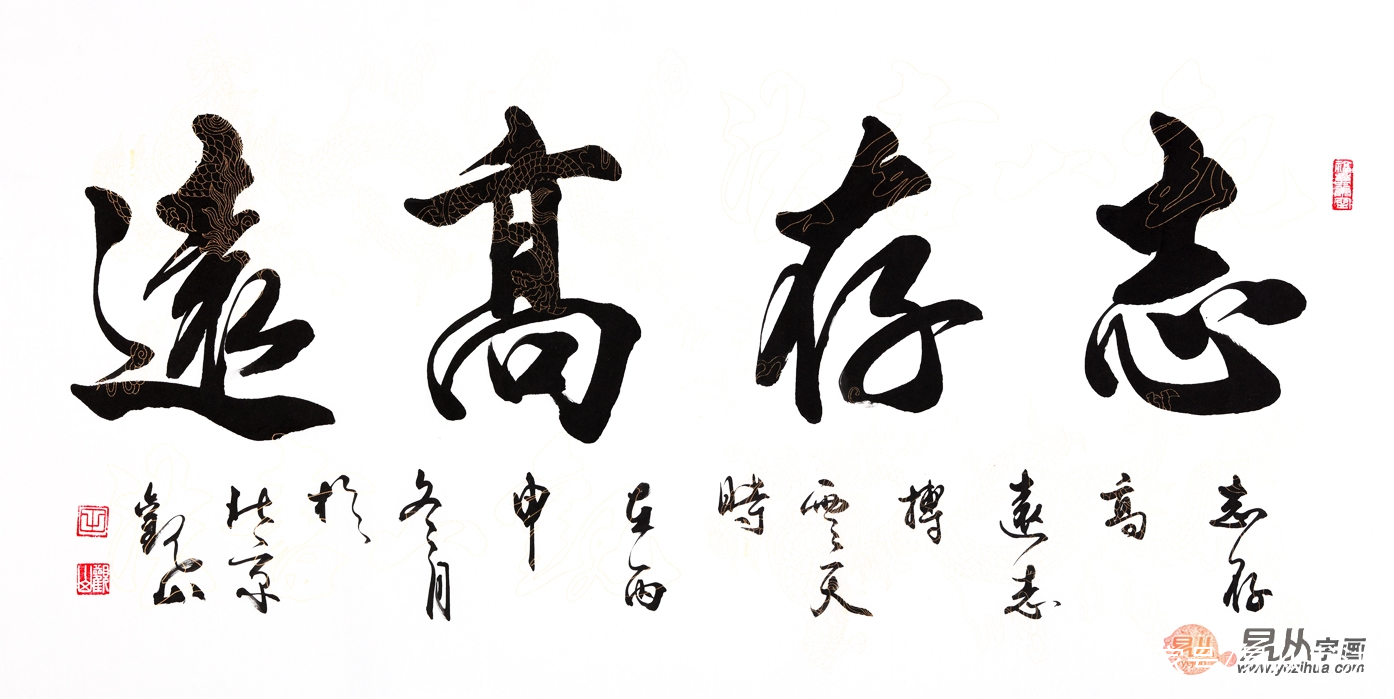 志存高遠
志存
高
遠志
搏
雲天
時
在丙
申
冬月
於
北京
觀山
觀山
易从字画
www.yczihua.com